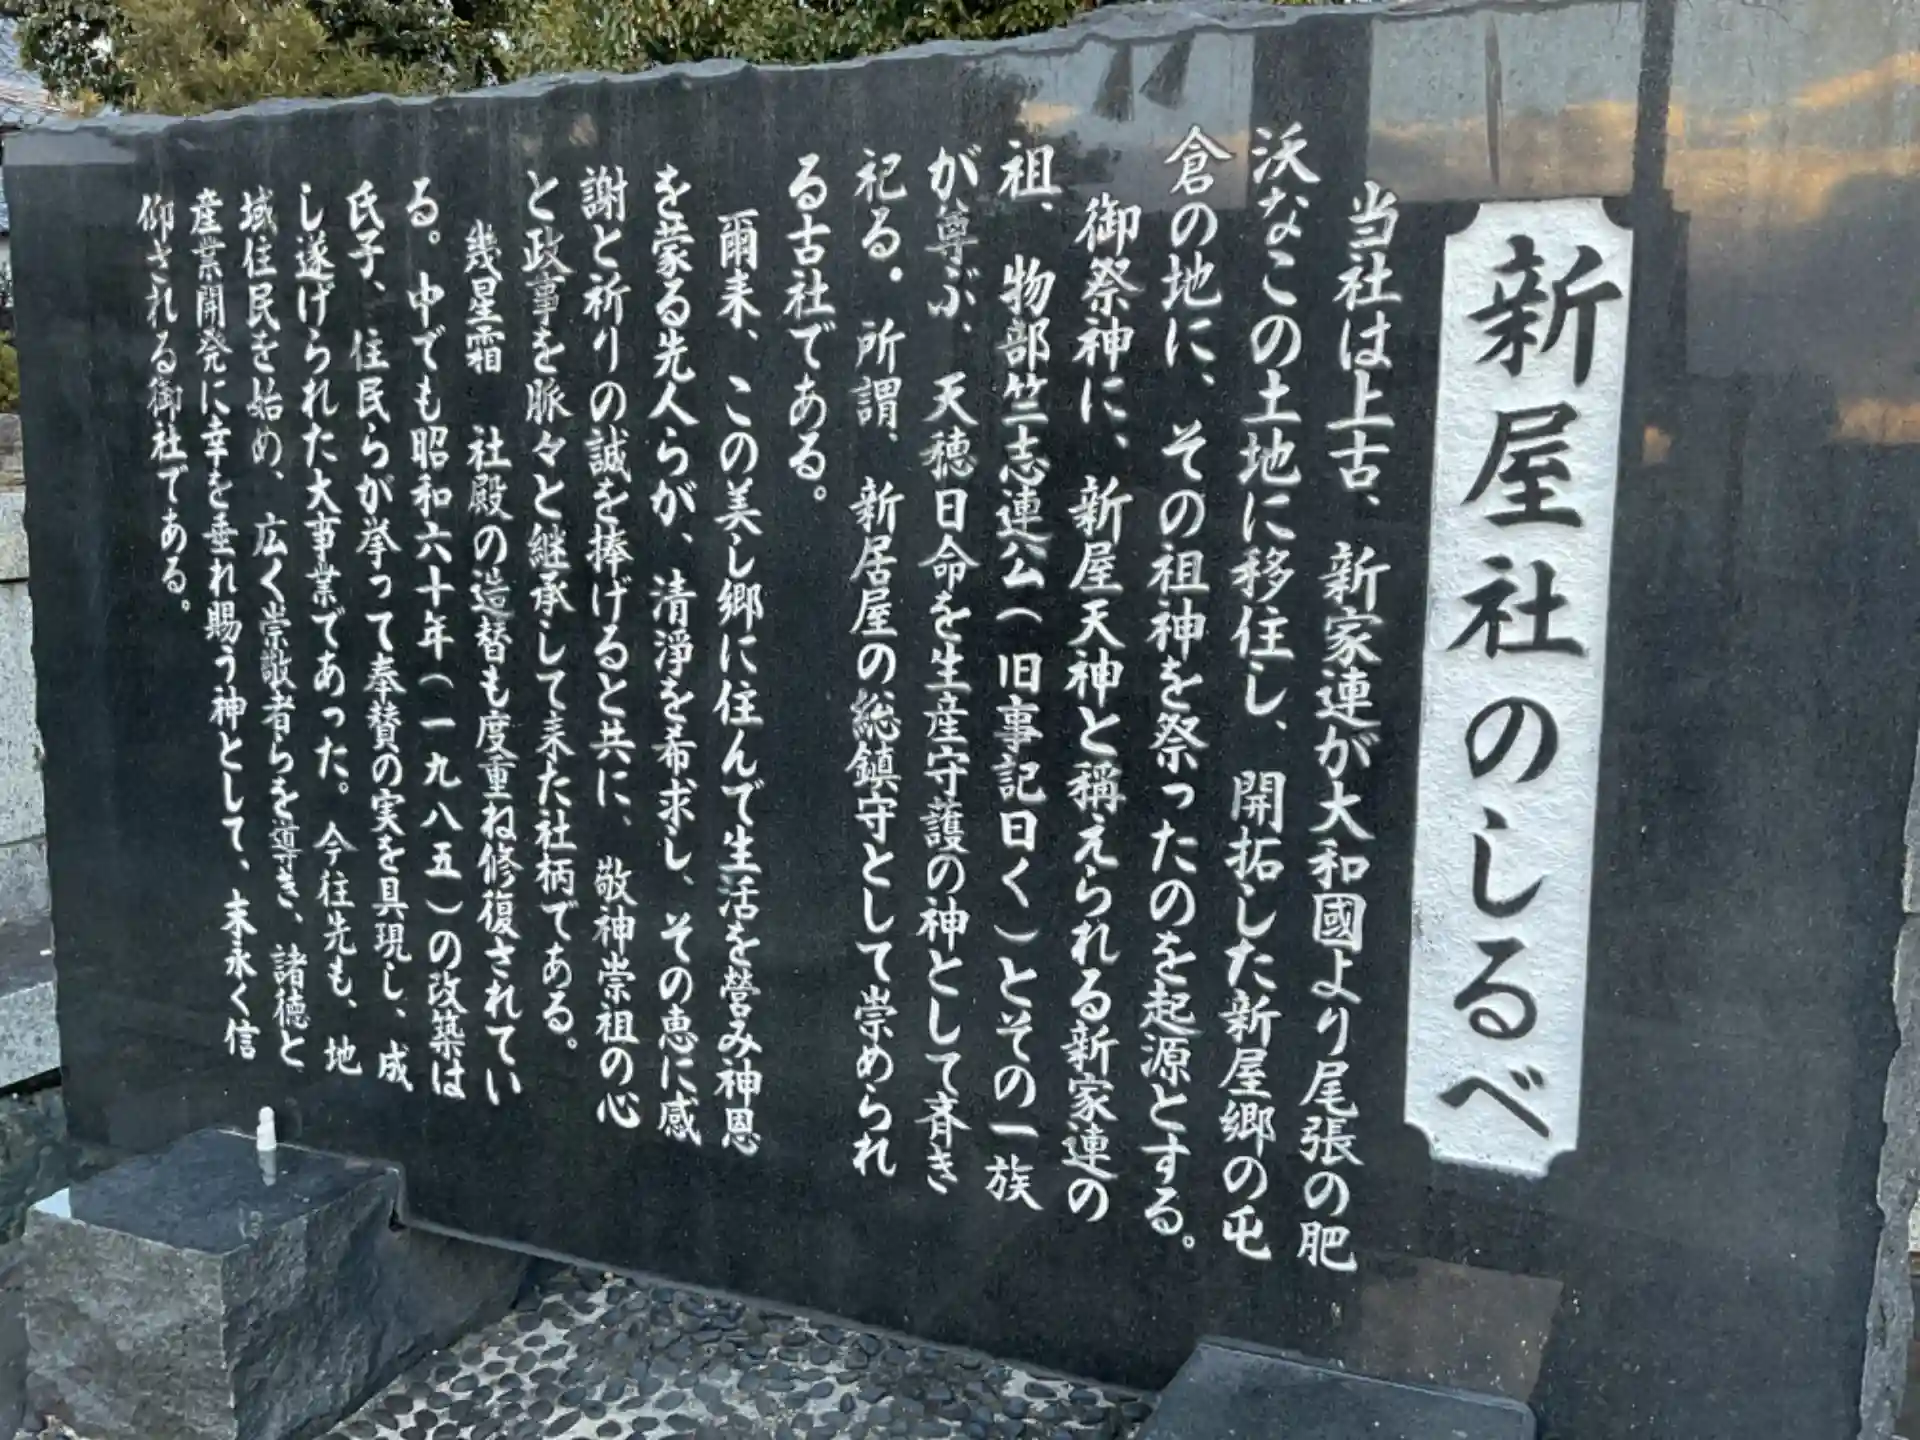 新屋社のしるべ
当社は上古、新家連が大和國より尾張の肥
沃なこの土地に移住し、開拓した新屋郷の屯
倉の地に、その祖神を祭ったのを起源とする。
御祭神に、新屋天神と稱えられる新家連の
祖、物部竺志連公(旧事記曰く)とその一族
が尊ぶ、天穂日命を生産守護の神として斉き
祀る。所謂、新居屋の総鎮守として崇められ
る古社である。
爾来、この美し郷に住んで生活を營み神恩
を蒙る先人らが、清淨を希求し、その恵に感
謝と祈りの誠を捧げると共に、敬神崇祖の心
と政事を脈々と継承して来た社柄である。
幾星霜 社殿の造替も度重ね修復されてい
る。中でも昭和六十年(一九八五)の改築は
氏子、住民らが挙って奉賛の実を具現し、成
し遂げられた大事業であった。今往先も、地
域住民を始め、広く崇敬者らを導き、諸徳と
産業開発に幸を垂れ賜う神として、末永く信
仰される御社である。